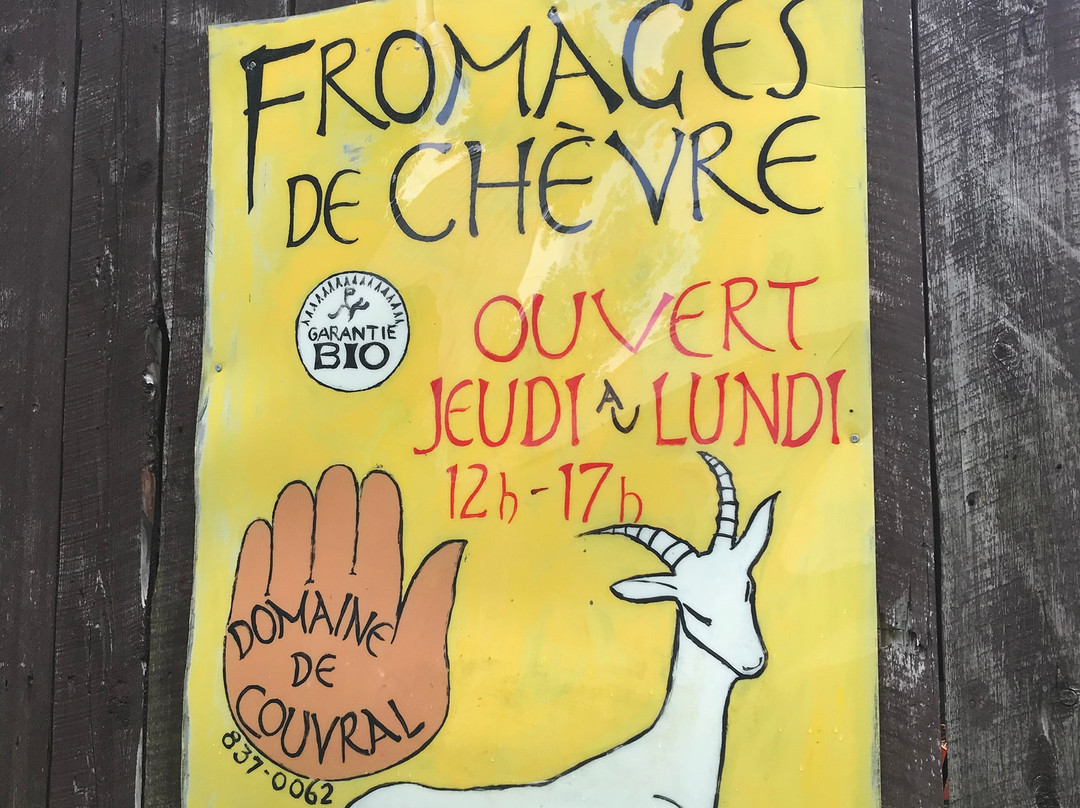 FROMAGES
DE CHÈVRE
GARANTIE
BIO
OUVERT
JEUDI AU LUNDI
12h-17h
DOMAINE
DE
COUVRAL
837-0062